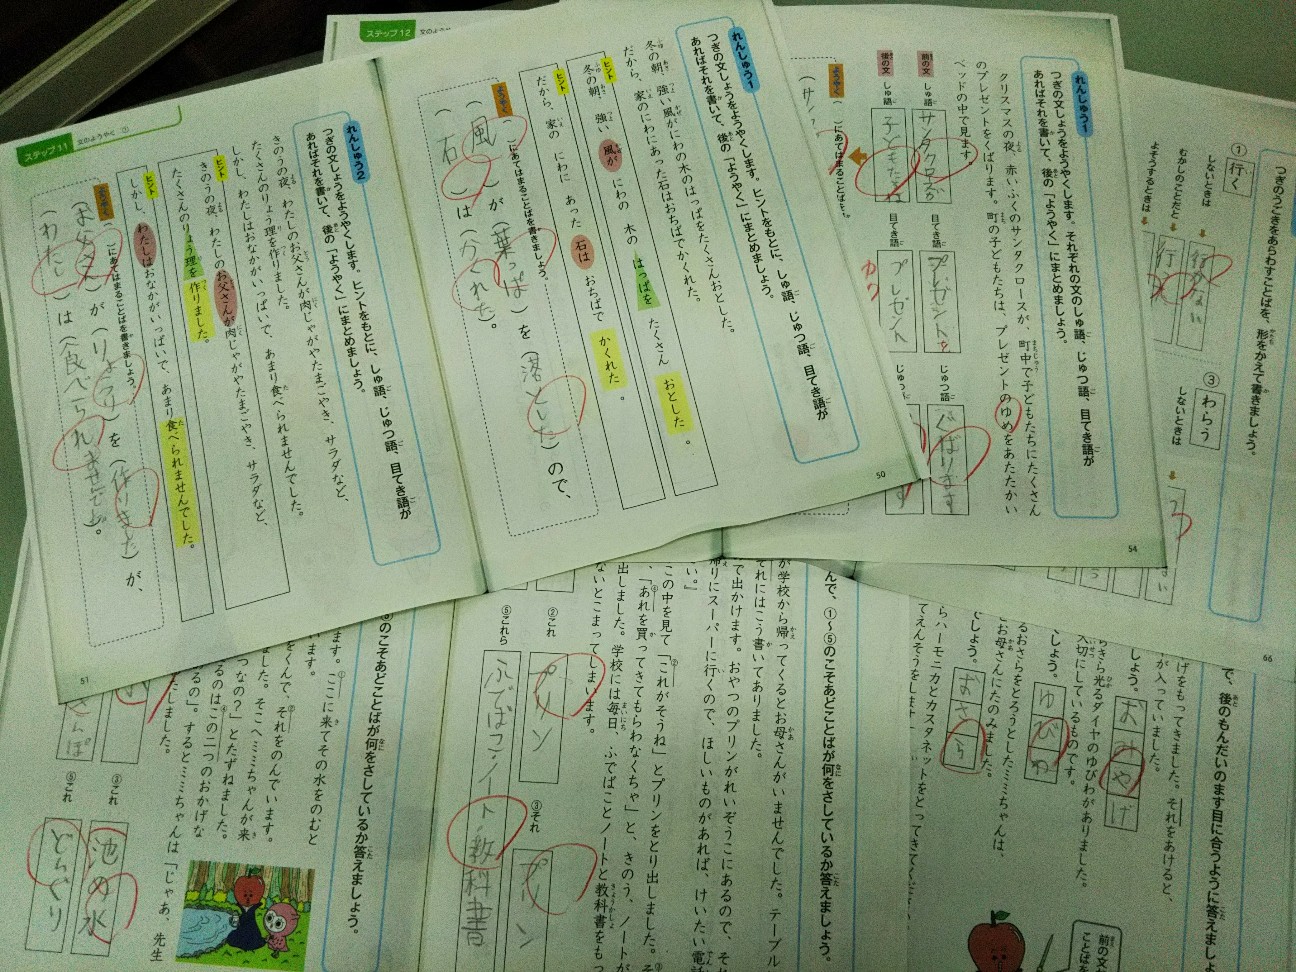 ステップ11 文のようやく ①
れんしゅう2
つぎの文しょうをようやくします。ヒントをもとに、しゅ語、じゅつ語、目てき語が
あればそれを書いて、後の「ようやく」にまとめましょう。
きのうの夜、わたしのお父さんが肉じゃがやたまごやき、サラダなど、
たくさんのりょう理を作りました。
しかし、わたしはおなかがいっぱいで、あまり食べられませんでした。
ヒント
きのうの夜、わたしのお父さんが肉じゃがやたまごやき、サラダなど、
たくさんのりょう理を作りました。
ヒント
しかし、わたしはおなかがいっぱいで、あまり食べられませんでした。
ようやく
( )にあてはまることばを書きましょう。
(お父さん)が(りょう理)を(作りました)が、
(わたし)は(食べられませんでした)。
51
れんしゅう1
つぎの文しょうをようやくします。ヒントをもとに、しゅ語、じゅつ語、目てき語が
あればそれを書いて、後の「ようやく」にまとめましょう。
冬の朝、強い風がにわの木のはっぱをたくさんおとした。
だから、家のにわにあった石はおちばでかくれた。
ヒント
冬の朝、強い風がにわの木のはっぱをたくさんおとした。
ヒント
だから、家のにわにあった石はおちばでかくれた。
ようやく
( )にあてはまることばを書きましょう。
(風)が(葉っぱ)を(落とした)ので、
(石)は(かくれた)。
50
ステップ12
れんしゅう1
つぎの文しょうをようやくします。それぞれの文のしゅ語、じゅつ語、目てき語が
あればそれを書いて、後の「ようやく」にまとめましょう。
クリスマスの夜、赤いふくのサンタクロースが、町中で子どもたちにたくさん
のプレゼントをくばります。町の子どもたちは、プレゼントのゆめをあたたかい
ベッドの中で見ます
前の文 しゅ語 サンタクロースが 目てき語 プレゼントを じゅつ語 くばります
後の文 しゅ語 子どもたちは 目てき語 プレゼント
ようやく
( )にあてはまることばを
54
つぎのうごきをあらわすことばを、形をかえて書きましょう。
① 行く
しないときは 行かない
むかしのことだと
よそうするときは
③ わらう
しないときは
66
で、後のもんだいのます目に合うように答えましょ
げをもってきました。それをあけると、
が入っていました。
おみやげ
きら光るダイヤのゆびわがありました。
大切にしているものです。
ゆびわ
るおさらをとろうとしたミミちゃんは、
お母さんにたのみました。
おさら
らハーモニカとカスタネットをとってきてく
前の文
ことばを
んで、①〜⑤のこそあどことばが何をさしているか答えましょう。
が学校から帰ってくるとお母さんがいませんでした。テーブル
それにはこう書いてありました。
で出かけます。おやつのプリンがれいぞうこにあるので、それ
帰りにスーパーに行くので、ほしいものがあれば、けいたい電話
い。』
この中を見て「これがそうね」とプリンをとり出しました。
「あれを買ってきてもらわなくちゃ」と、きのう、ノートが
出しました。学校には毎日、ふでばことノートと教科書をもっ
ないとこまってしまいます。
②これ プリン
③それ プリン
⑤これら ふでばこ・ノート・教科書
のこそあどことばが何をさしているか答えましょう。
ます。ここに来てその水をのむと
います。
をくんで、それをのんでいます。
ました。そこへミミちゃんが来
つなの？」とたずねました。
るのはこの二つのおかげな
るの」。するとミミちゃんは「じゃあ、先生
たしました。
さんぽ
③これ 池の水
⑤これ どんぐり